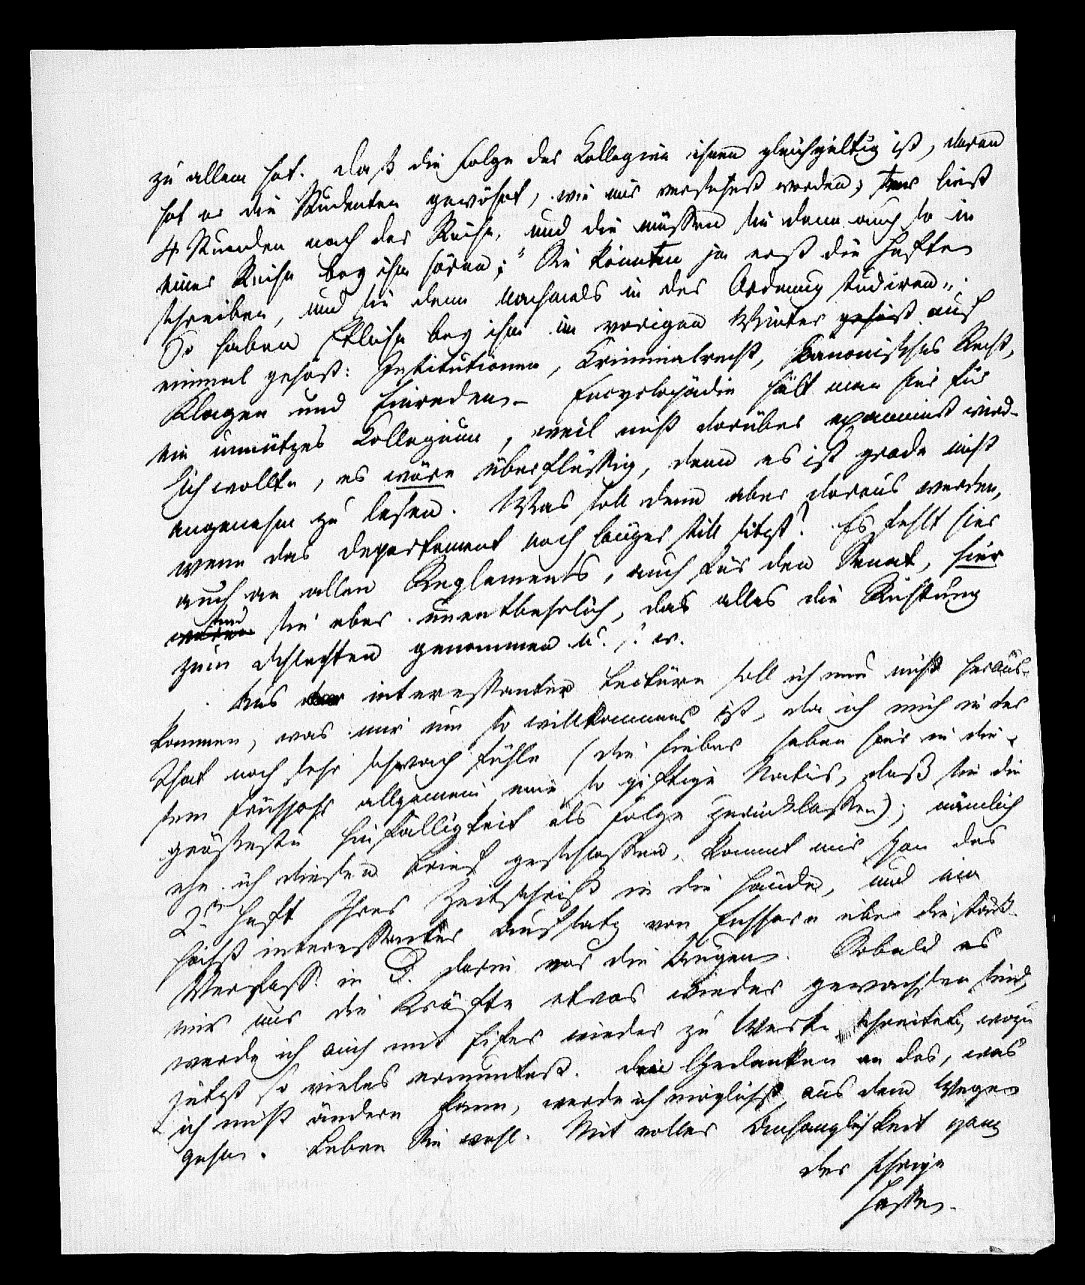 zu allem hat. Daß die Folge der Collegien ihnen gleichgültig ist, daran
hat er die Studenten gewöhnt, wie mir versichert worden; er liest
4 Stunden nach der Reihe, und die müssen sie denn auch so in
einer Reihe bey ihm hören; "Sie könnten ja erst die Hefte
schreiben, und sie denn nachmals in der Ordnung studiren".
So haben Etliche bey ihm im vorigen Winter gehört auf
einmal gehört: Institutionen, Kriminalrecht, Kanonisches Recht,
Klagen und Einreden. Encyclopädie hält man hier für
ein unnützes Collegium, weil nicht darüber examinirt wird.
Ich wollte, es wäre überflüssig, denn es ist grade nicht
angenehm zu lesen. Was soll denn aber daraus werden,
wenn das Departement noch länger still sitzt? Es fehlt hier
auch an allen Reglements, auch für den Senat, hier
sind
wären sie aber unentbehrlich, da alles die Richtung
zum Schlechten genommen u. s. w.
Aus der interessanten Lectüre soll ich nun nicht heraus-
kommen, was mir um so willkommner ist, da ich mich in der
That noch sehr schwach fühle (die Fieber haben hier in die-
sem Frühjahr allgemein eine so giftige Natur, daß sie die
größeste Hinfälligkeit als Folge zurücklassen); nämlich
ehe ich diesen Brief geschlossen, kommt mir schon das
2te Heft Ihrer Zeitschrift in die Hände, und ein
höchst interessanter Aufsatz von Eichhorn über die städt.
Verfass. in D. darin vor die Augen. Sobald es
mir nur die Kräfte etwas wieder gewachsen sind,
werde ich auch mit Eifer wieder zu Werke schreiten, wozu
jetzt so vieles ermuntert. Den Gedanken an das, was
ich nicht ändern kann, werde ich möglichst aus dem Wege
gehen. Leben Sie wohl. Mit voller Anhänglichkeit ganz
der Ihrige
Hasse.